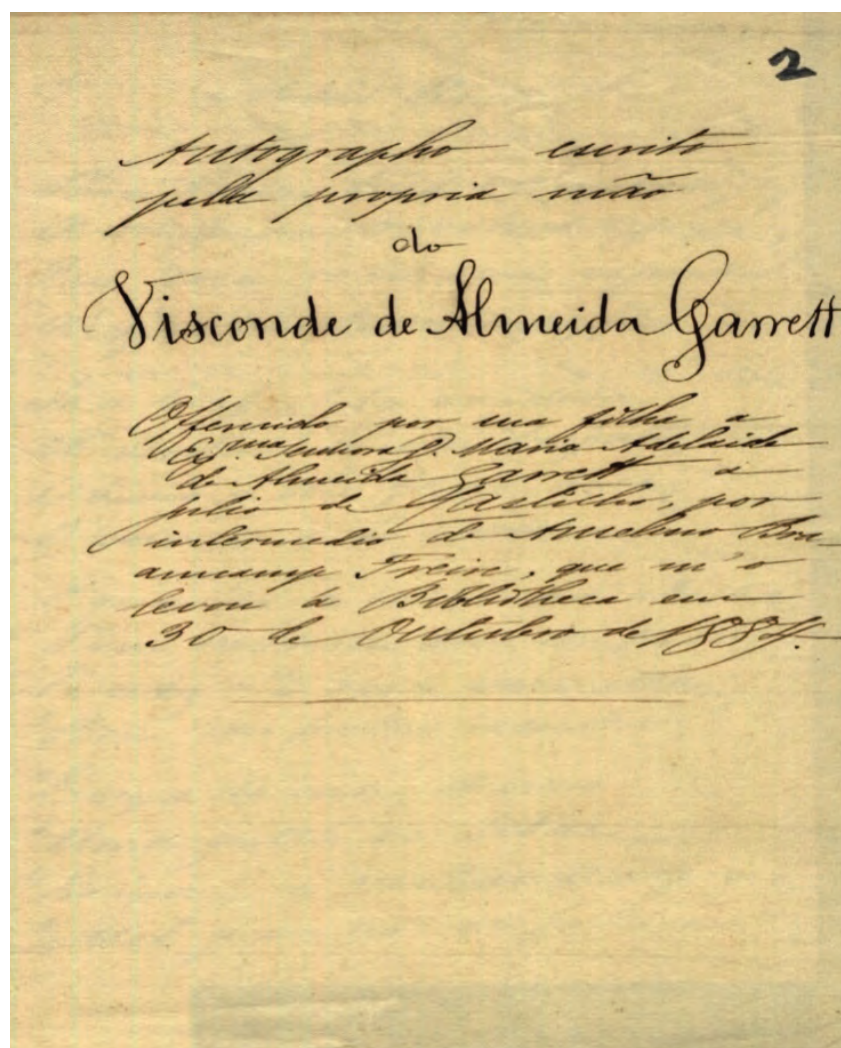 2
Autographo escrito
pela propria mão
do
Visconde de Almeida Garrett
Offerecido por sua filha a
Ex.ma Senhora D. Maria Adelaide
de Almeida Garrett a
Julio de Castilho, por
intermedio de Anselmo Bra-
amcamp Freire, que m'o
levou á Bibliotheca em
30 de Outubro de 1884.